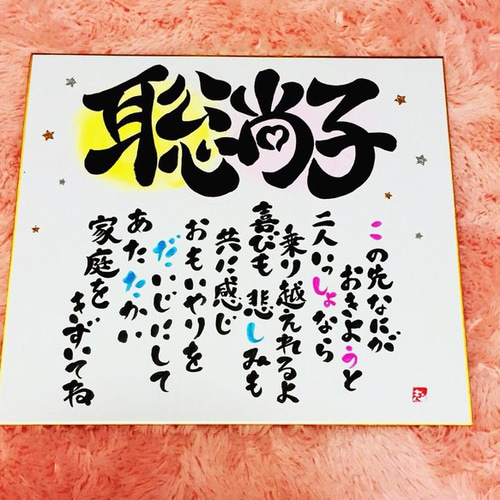 聡尚子
この先なにが
おきようと
二人いっしょなら
乗り越えれるよ
喜びも 悲しみも
共に感じ
おもいやりを
だいじにして
あたたかい
家庭を
きずいてね